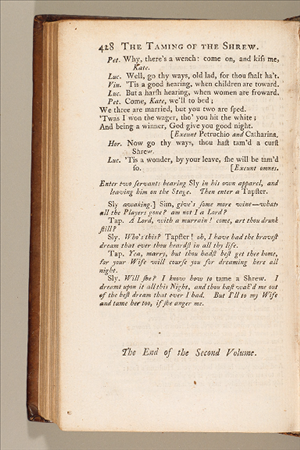 428 THE TAMING OF THE SHREW.
Pet. Why, there's a wench: come on, and kiſs me,
Kate.
Luc. Well, go thy ways, old lad, for thou ſhalt ha't.
Vin. 'Tis a good hearing, when children are toward.
Luc. But a harſh hearing, when women are froward.
Pet. Come, Kate, we'll to bed;
We three are married, but you two are ſped.
'Twas I won the wager, tho' you hit the white;
And being a winner, God give you good night.
[Exeunt Petruchio and Catharina.
Hor. Now go thy ways, thou haſt tam'd a curſt
Shrew.
Luc. 'Tis a wonder, by your leave, ſhe will be tam'd
ſo. [Exeunt omnes.
Enter two ſervants bearing Sly in his own apparel, and
leaving him on the Stage. Then enter a Tapſter.
Sly awaking.] Sim, give's ſome more wine—what:
all the Players gone? am not I a Lord?
Tap. A Lord, with a murrain! come, art thou drunk
ſtill?
Sly. Who's this? Tapſter! oh, I have had the braveſt
dream that ever thou heardſt in all thy life.
Tap. Yea, marry, but thou hadſt beſt get thee home,
for your Wife will courſe you for dreaming here all
night.
Sly. Will ſhe? I know how to tame a Shrew. I
dreamt upon it all this Night, and thou haſt wak'd me out
of the beſt dream that ever I had. But I'll to my Wife
and tame her too, if ſhe anger me.
The End of the Second Volume.